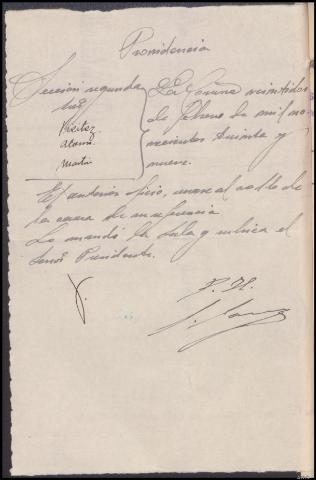 Providencia
Sección segunda
La Coruña veintidos
de Febrero de mil no-
vecientos treinta y
nueve.
El anterior oficio, unase al rollo de
la causa de su referencia
Lo mandó la Sala y rubrica el
Señor Presidente.
P. H.